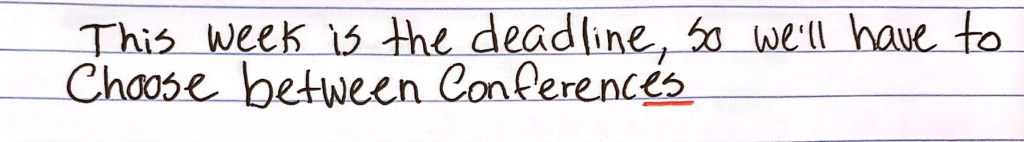 This week is the deadline, so we'll have to
Choose between Conferences